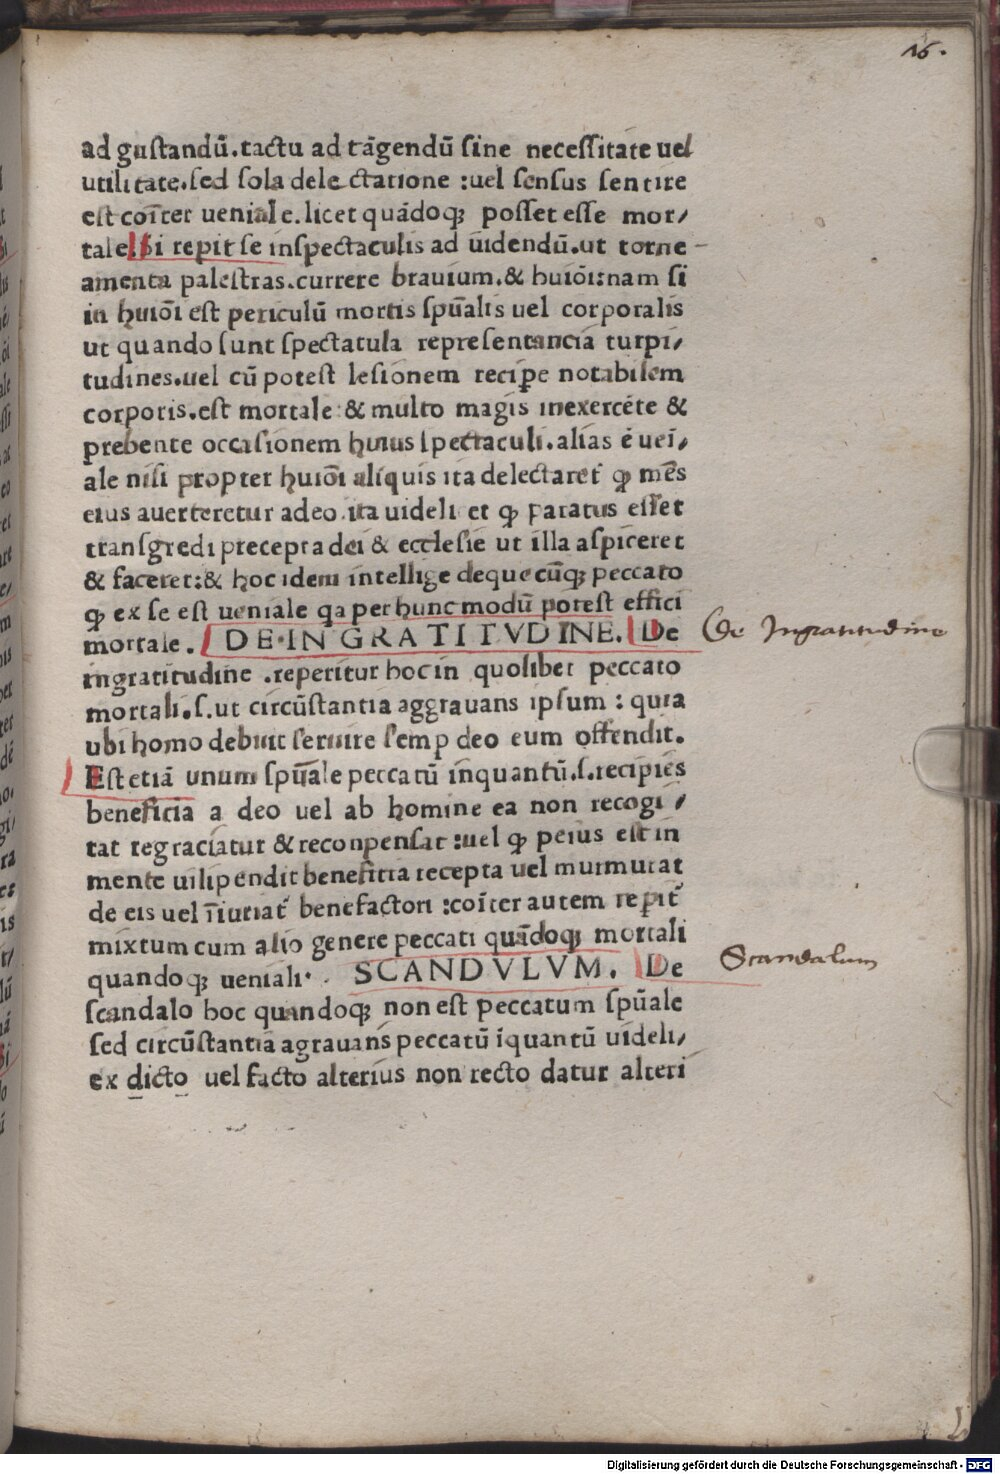 16.
ad gustandū.tactu ad tāgendū sine necessitate uel
utilitate.sed sola delectatione :uel sensus sentire
est coīter ueniale.licet quādoqꝫ posset esse mor/
tale Si repit se inspectaculis ad uidendū.ut torne
amenta palestras.currere brauium.& huiōi:nam si
in huiōi est periculū mortis spūalis uel corporalis
ut quando sunt spectatula representancia turpi/
tudines.uel cū potest lesionem reciꝑe notabilem
corporis.est mortale & multo magis inexercēte &
prebente occasionem huius spectaculi.alias ē ueī/
ale nisi propter huiōi aliquis ita delectaret ꝙ mēs
eius auerteretur adeo ita uideli et ꝙ paratus esset
transgredi precepta dei & ecclesie ut illa aspiceret
& faceret:& hoc idem intellige dequecūqꝫ peccato
ꝙ ex se est ueniale qa per hunc modū potest effici
mortale. DE·INGRATITVDINE. De
De Ingratitudine
ingratitudine .reperitur hoc in quolibet peccato
mortali.s.ut circūstantia aggrauans ipsum : quia
ubi homo debuit seruire semp deo eum offendit.
Est etiā unum spūale peccatū inquantū.s.recipiēs
beneficia a deo uel ab homine ea non recogi /
tat regraciatur & reconpensat :uel ꝙ peius est in
mente uilipendit beneficia recepta uel murmurat
de eis uel īiuriat benefactori :coīter autem repit
mixtum cum alio genere peccati quādoqꝫ mortali
quandoqꝫ ueniali. SCANDVLVM. De
Scandalum
scandalo hoc quandoqꝫ non est peccatum spūale
sed circūstantia agrauans peccatū iquantū uideli/
ex dicto uel facto alterius non recto datur alteri
Digitalisierung gefördert durch die Deutsche Forschungsgemeinschaft - DFG